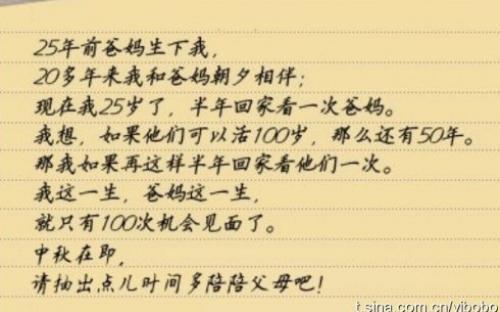 25年前爸妈生下我，
20多年来我和爸妈朝夕相伴；
现在我25岁了，半年回家看一次爸妈。
我想，如果他们可以活100岁，那么还有50年。
那我如果再这样半年回家看他们一次。
我这一生，爸妈这一生，
就只有100次机会见面了。
中秋在即，
请抽出点儿时间多陪陪父母吧！
t.sina.com.cn/yibobo